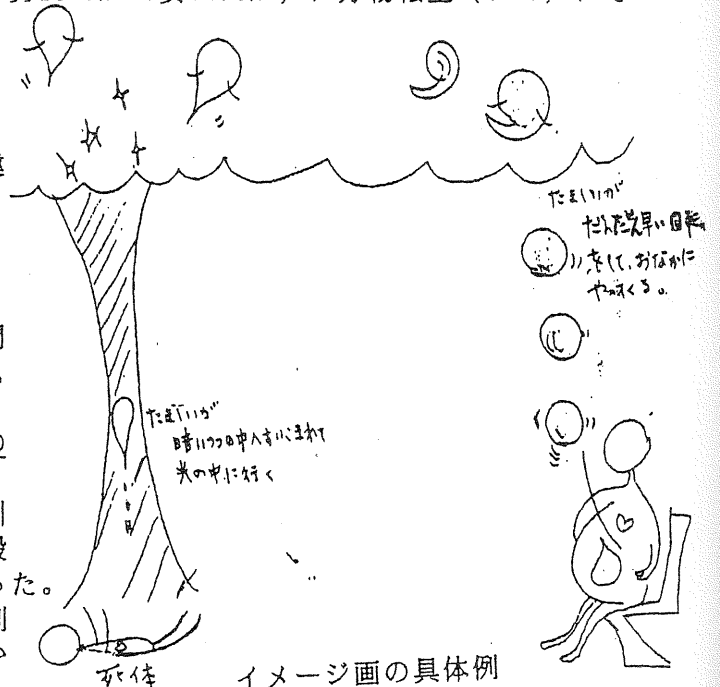 たましいが
だんだん早い回転
をして、おなかに
やってくる。
たましいが
暗いつつの中へすいこまれて
光の中に行く
った。
死体
イメージ画の具体例